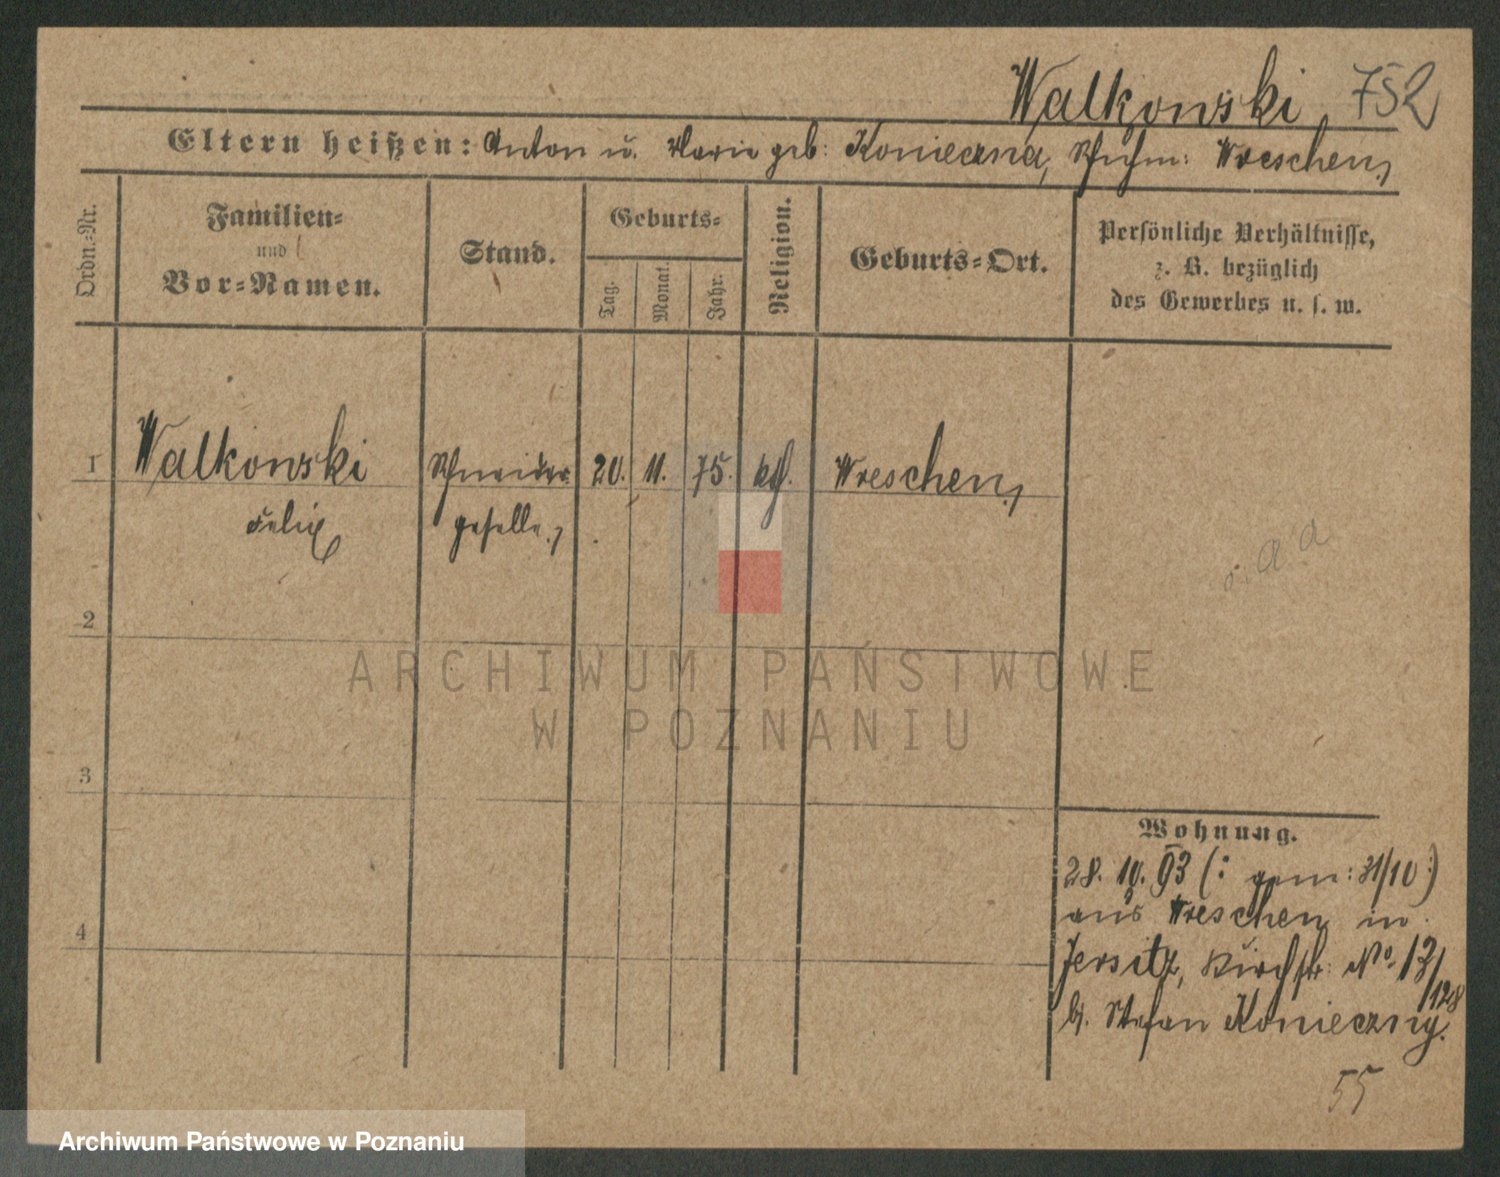 Walkowski 752
Eltern heißen: Anton u. Marie geb: Konieczna, Schuhm: Wreschen,
Ordn.-Nr.
Familien-
und
Vor-Namen.
Stand.
Geburts-
Tag.
Monat.
Jahr.
Religion.
Geburts-Ort.
Persönliche Verhältnisse,
z. B. bezüglich
des Gewerbes u. s. w.
1 Walkowski Schneider 20. 11. 75. kth. Wreschen,
Felix geselle,
2
3
4
Wohnung.
28. 10. 93 (: gem: 31/10:)
aus Wreschen in
Jersitz, Kirchstr: No. 13/128
b. Stefan Konieczny.
55
ARCHIWUM PAŃSTWOWE
W POZNANIU
Archiwum Państwowe w Poznaniu